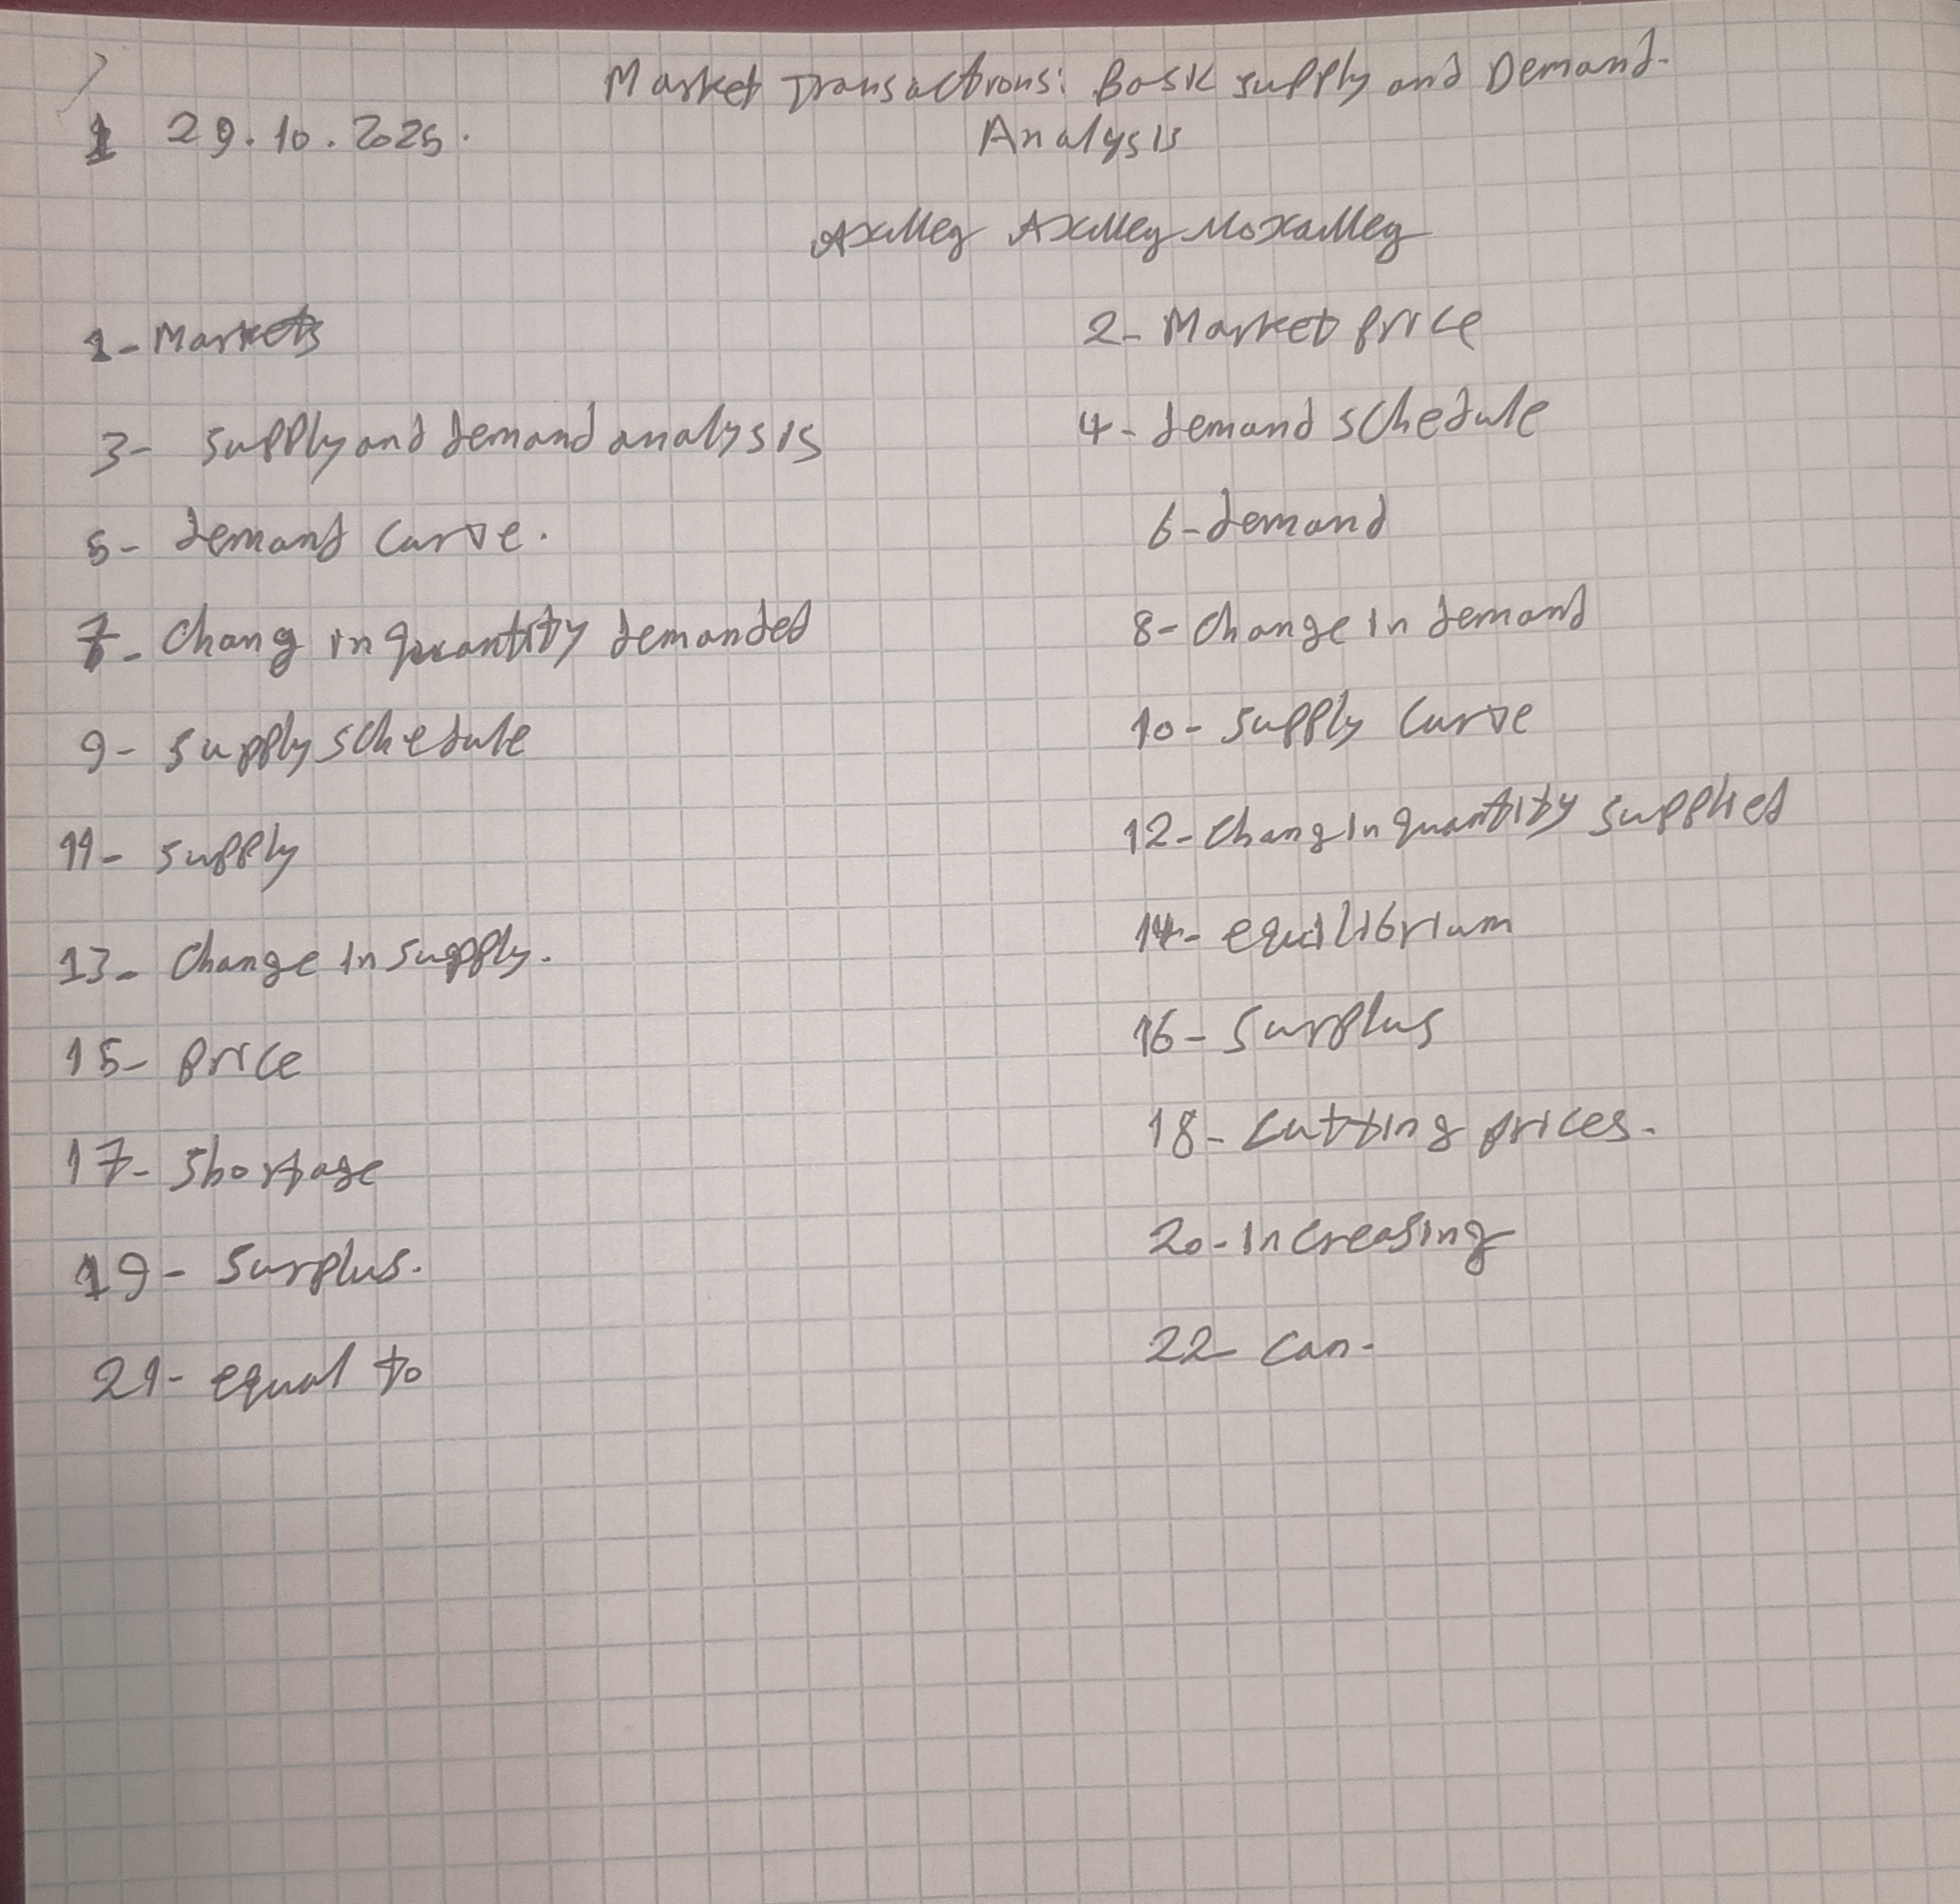 Market Transactions: Basic supply and Demand.
29.10.2025.
Analysis
Ахмед Ахмед Мохаммед
1- Markets
2- Market price
3- supply and demand analysis
4- demand schedule
5- demand curve.
6- demand
7- Chang in quantity demanded
8- Change in demand
9- supply schedule
10- supply curve
11- supply
12- Chang in quantity supplied
13- Change in supply.
14- equilibrium
15- price
16- surplus
17- Shortage
18- cutting prices.
19- Surplus.
20- increasing
21- equal to
22- can.